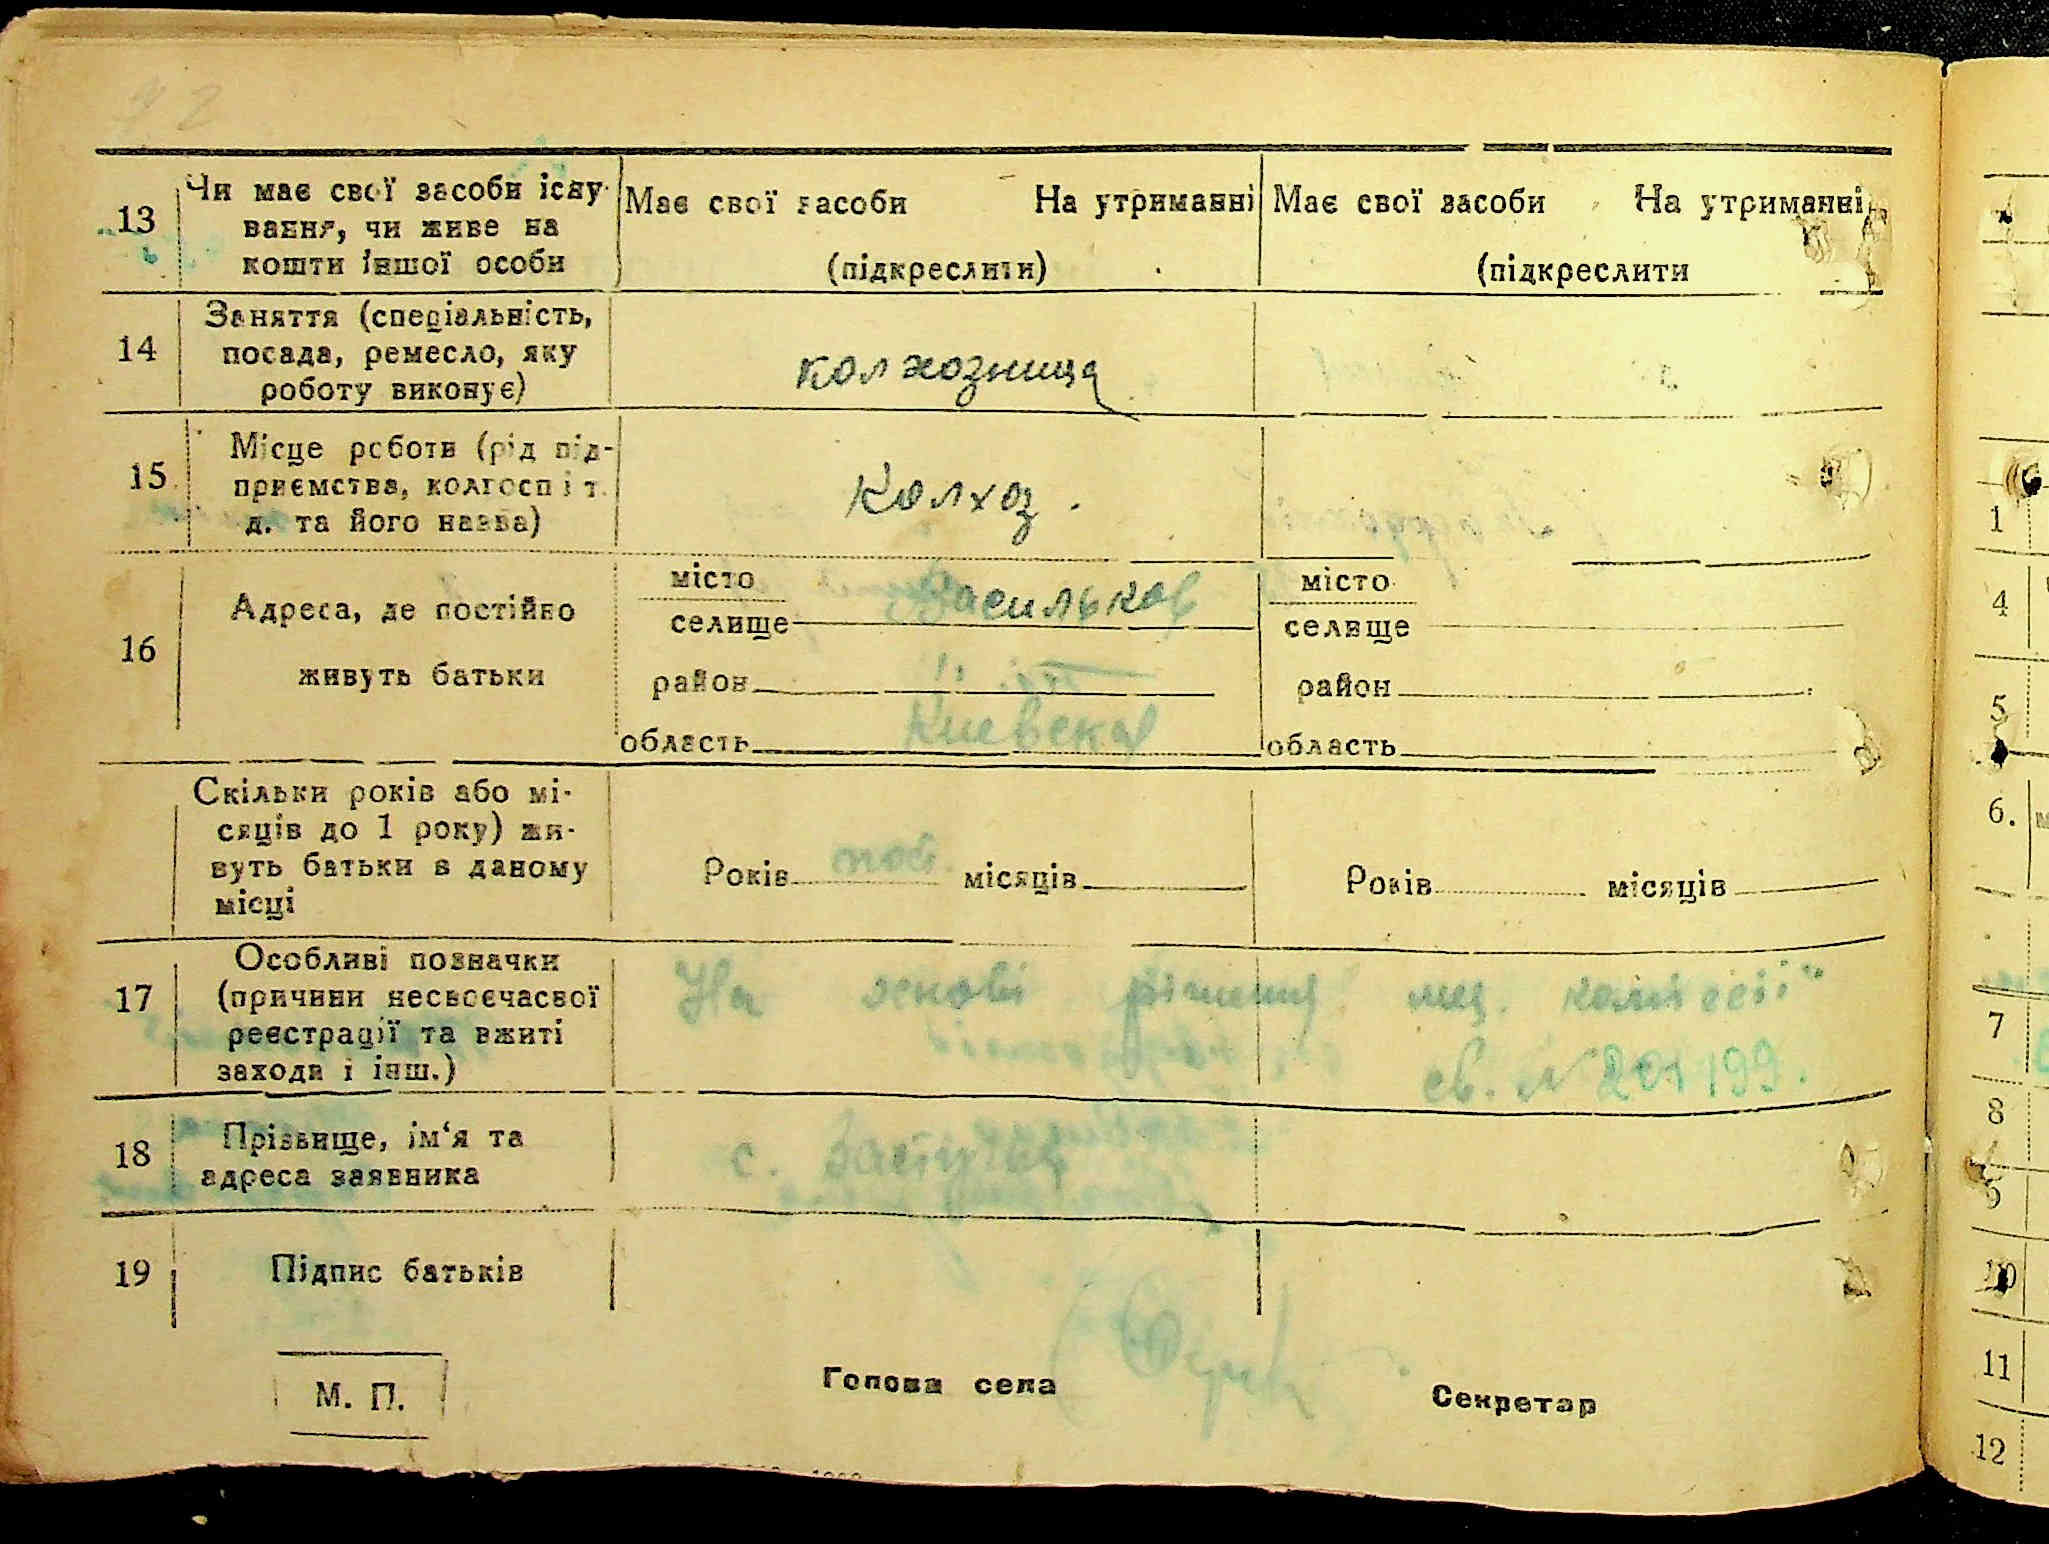 13
Чи має свої засоби існу-
вання, чи живе на
кошти іншої особи
Має свої засоби На утриманні
(підкреслити)
Має свої засоби На утриманні
(підкреслити
14
Заняття (спеціальність,
посада, ремесло, яку
роботу виконує)
колхозница
15
Місце роботи (рід під-
приємства, колгосп і т.
д. та його назва)
Колхоз.
16
Адреса, де постійно
живуть батьки
місто
селище Васильков
район
область Киевская
місто
селище
район
область
Скільки років або мі-
сяців до 1 року) жи-
вуть батьки в даному
місці
Років пост. місяців
Років місяців
17
Особливі позначки
(причини несвоєчасної
реєстрації та вжиті
заходи і інш.)
На основі рішення мед. комісії
св. N 201199.
18
Прізвище, ім'я та
адреса заявника
с.
19
Підпис батьків
М. П.
Голова села
Секретар
1
4
5
6.
7
8
9
10
11
12